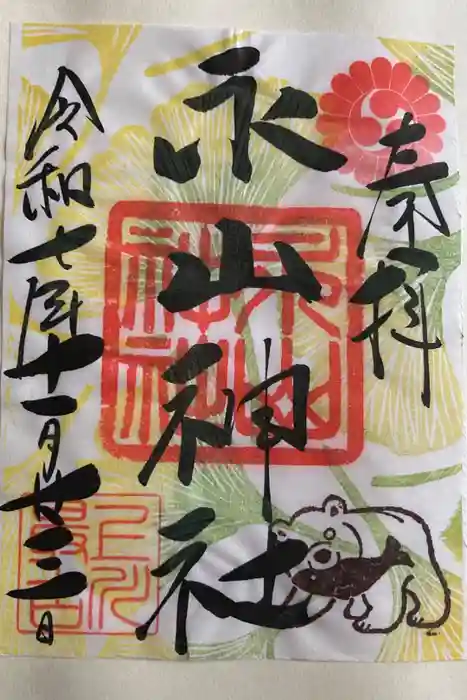 奉拝
永山神社
令和七年十一月廿三日
永山
神社
上川
最古